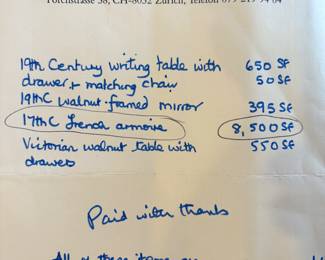 Forchstrasse 38, CH-8032 Zürich, Telefon 079 219 94 04
19th Century writing table with 650 SF
drawer + matching chair 50 SF
19thC walnut framed mirror 395 SF
17thC French armoire 8,500 SF
Victorian walnut table with 550 SF
drawers
Paid with thanks
All of these items are